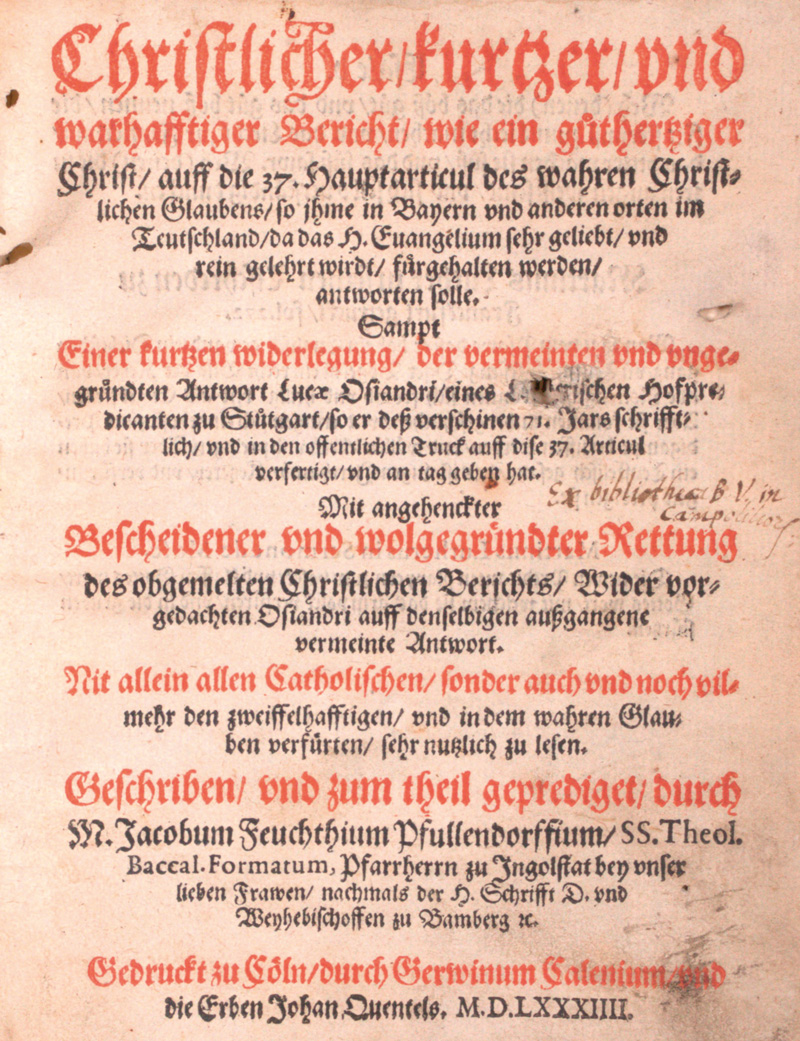 Christlicher/ kurtzer/ vnd
warhafftiger Bericht/ wie ein gůthertziger
Christ/ auff die 37. Hauptarticul des wahren Christ-
lichen Glaubens/ so jhme in Bayern vnd anderen orten im
Teutschland/ da das H. Euangelium sehr geliebt/ vnd
rein gelehrt wirdt/ fürgehalten werden/
antworten solle.
Sampt
Einer kurtzen widerlegung/ der vermeinten vnd vnge-
gründten Antwort Lucæ Osiandri/ eines Hofpre-
dicanten zu Stůtgart/ so er deß verschinen 71. Jars schrifft-
lich/ vnd in den offentlichen Truck auff dise 37. Articul
verfertigt/ vnd an tag geben hat.
Ex bibliotheca B V. in
Mit angehenckter
Bescheidener vnd wolgegründter Rettung
des obgemelten Christlichen Berichts/ Wider vor-
gedachten Osiandri auff denselbigen außgangene
vermeinte Antwort.
Nit allein allen Catholischen/ sonder auch vnd noch vil-
mehr den zweiffelhafftigen/ vnd in dem wahren Glau-
ben verfürten/ sehr nutzlich zu lesen.
Geschriben/ vnd zum theil geprediget/ durch
M. Jacobum Feuchthium Pfullendorffium/ SS. Theol.
Baccal. Formatum, Pfarrherrn zu Ingolstat bey vnser
lieben Frawen/ nachmals der H. Schrifft D. vnd
Weyhebischoffen zu Bamberg ꝛc.
Gedruckt zu Cöln/ durch Gerwinum Calenium/ vnd
die Erben Johan Quentels. M.D.LXXXIIII.